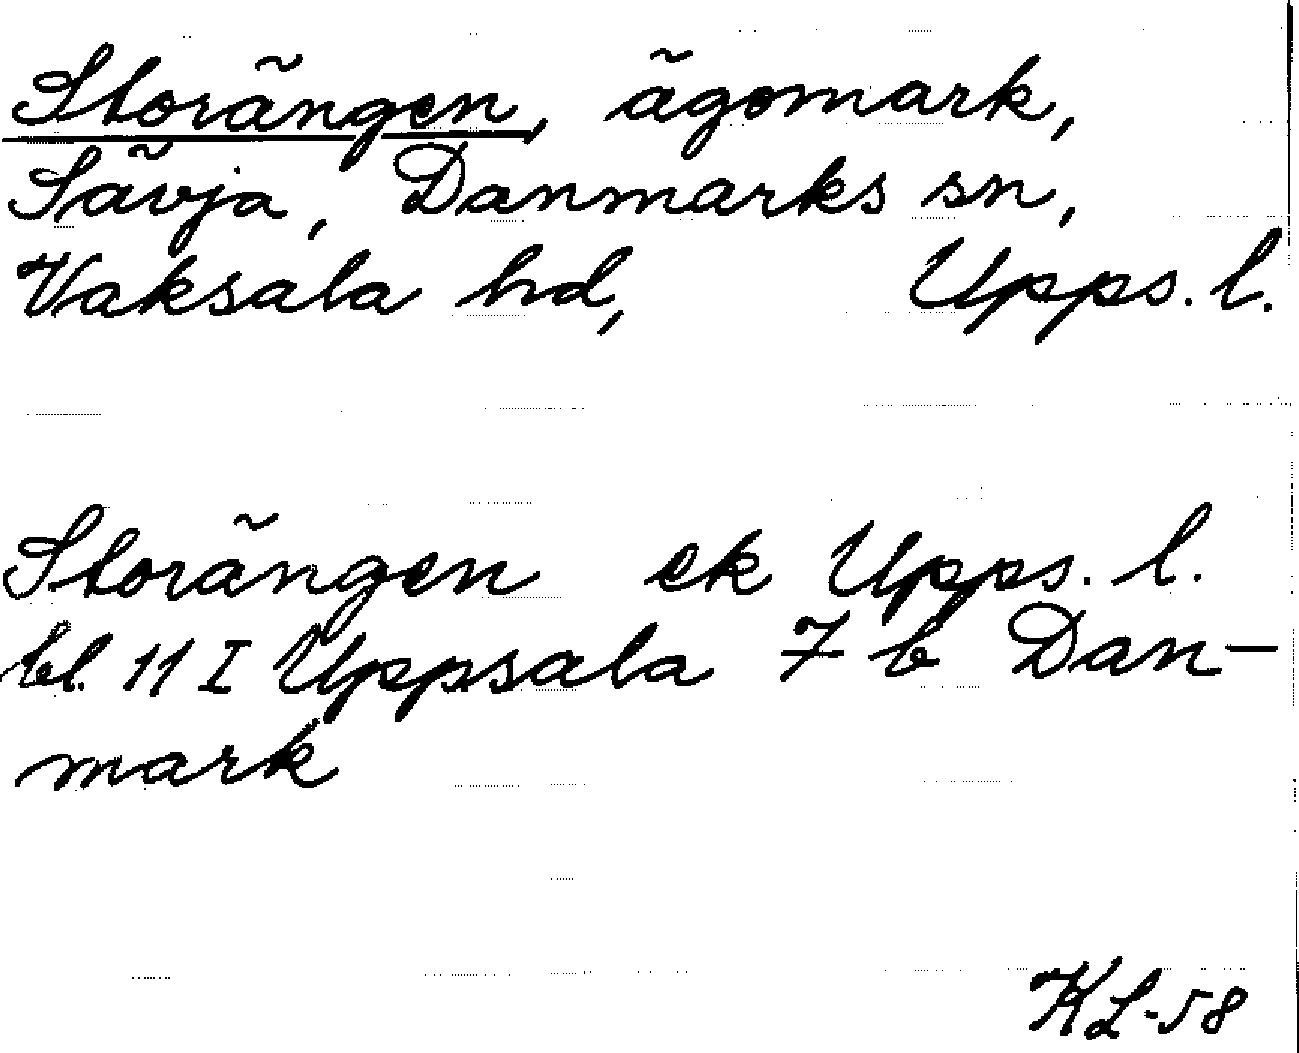 Storängen, ägomark,
Sävja, Danmarks sn,
Vaksala hd, Upps. l.
Storängen ek Upps. l.
bl. 11 I Uppsala 7 b Dan-
mark
KL-58